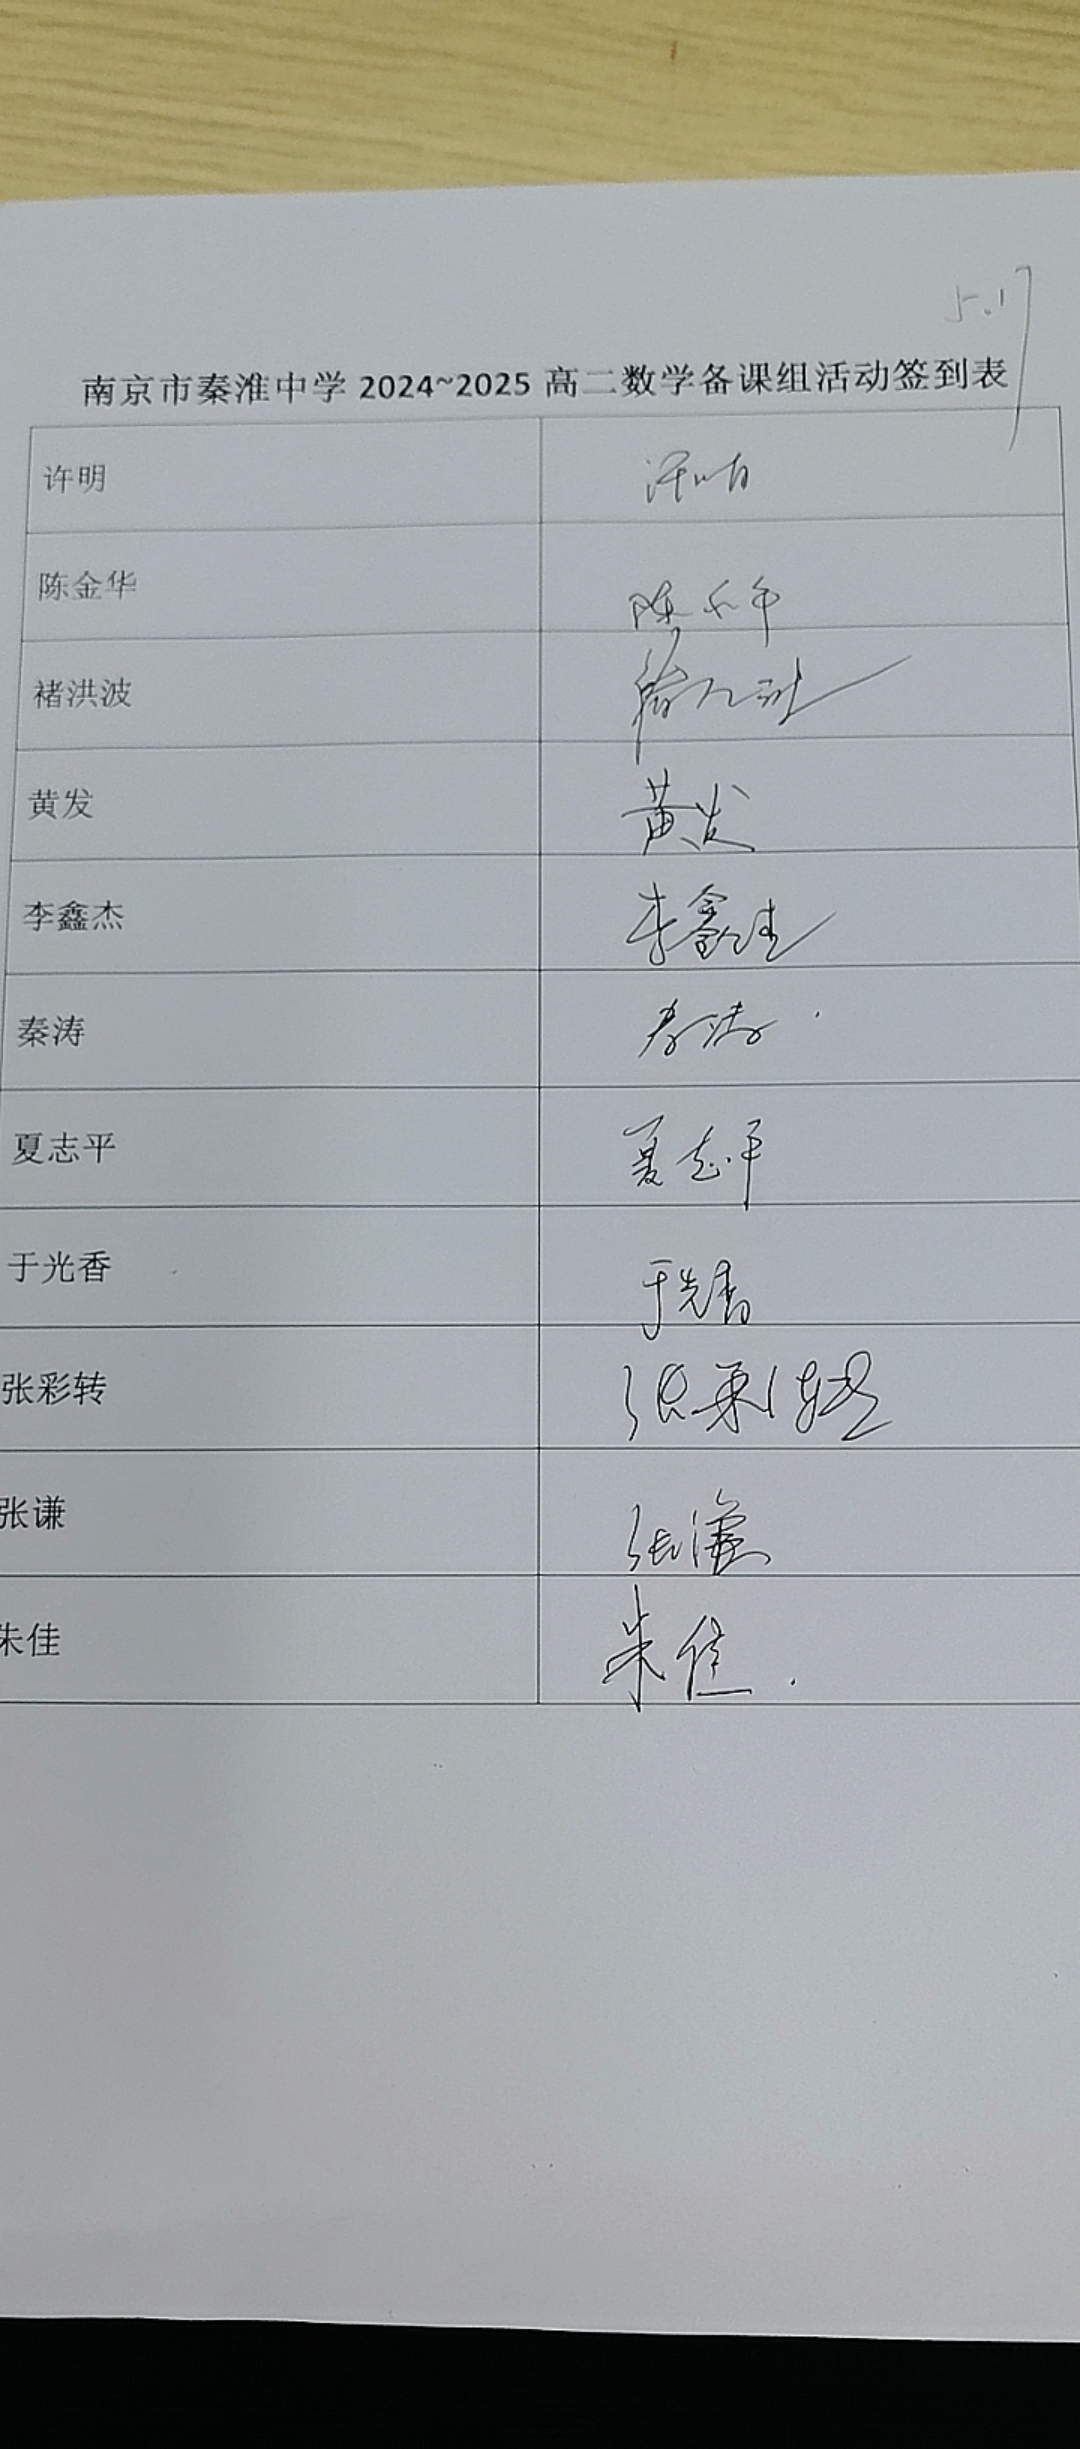 5.17
南京市秦淮中学 2024~2025 高二数学备课组活动签到表
许明 许明
陈金华 陈金华
褚洪波
黄发 黄发
李鑫杰 李鑫杰
秦涛 秦涛
夏志平 夏志平
于光香 于光香
张彩转 张彩转
张谦 张谦
朱佳 朱佳